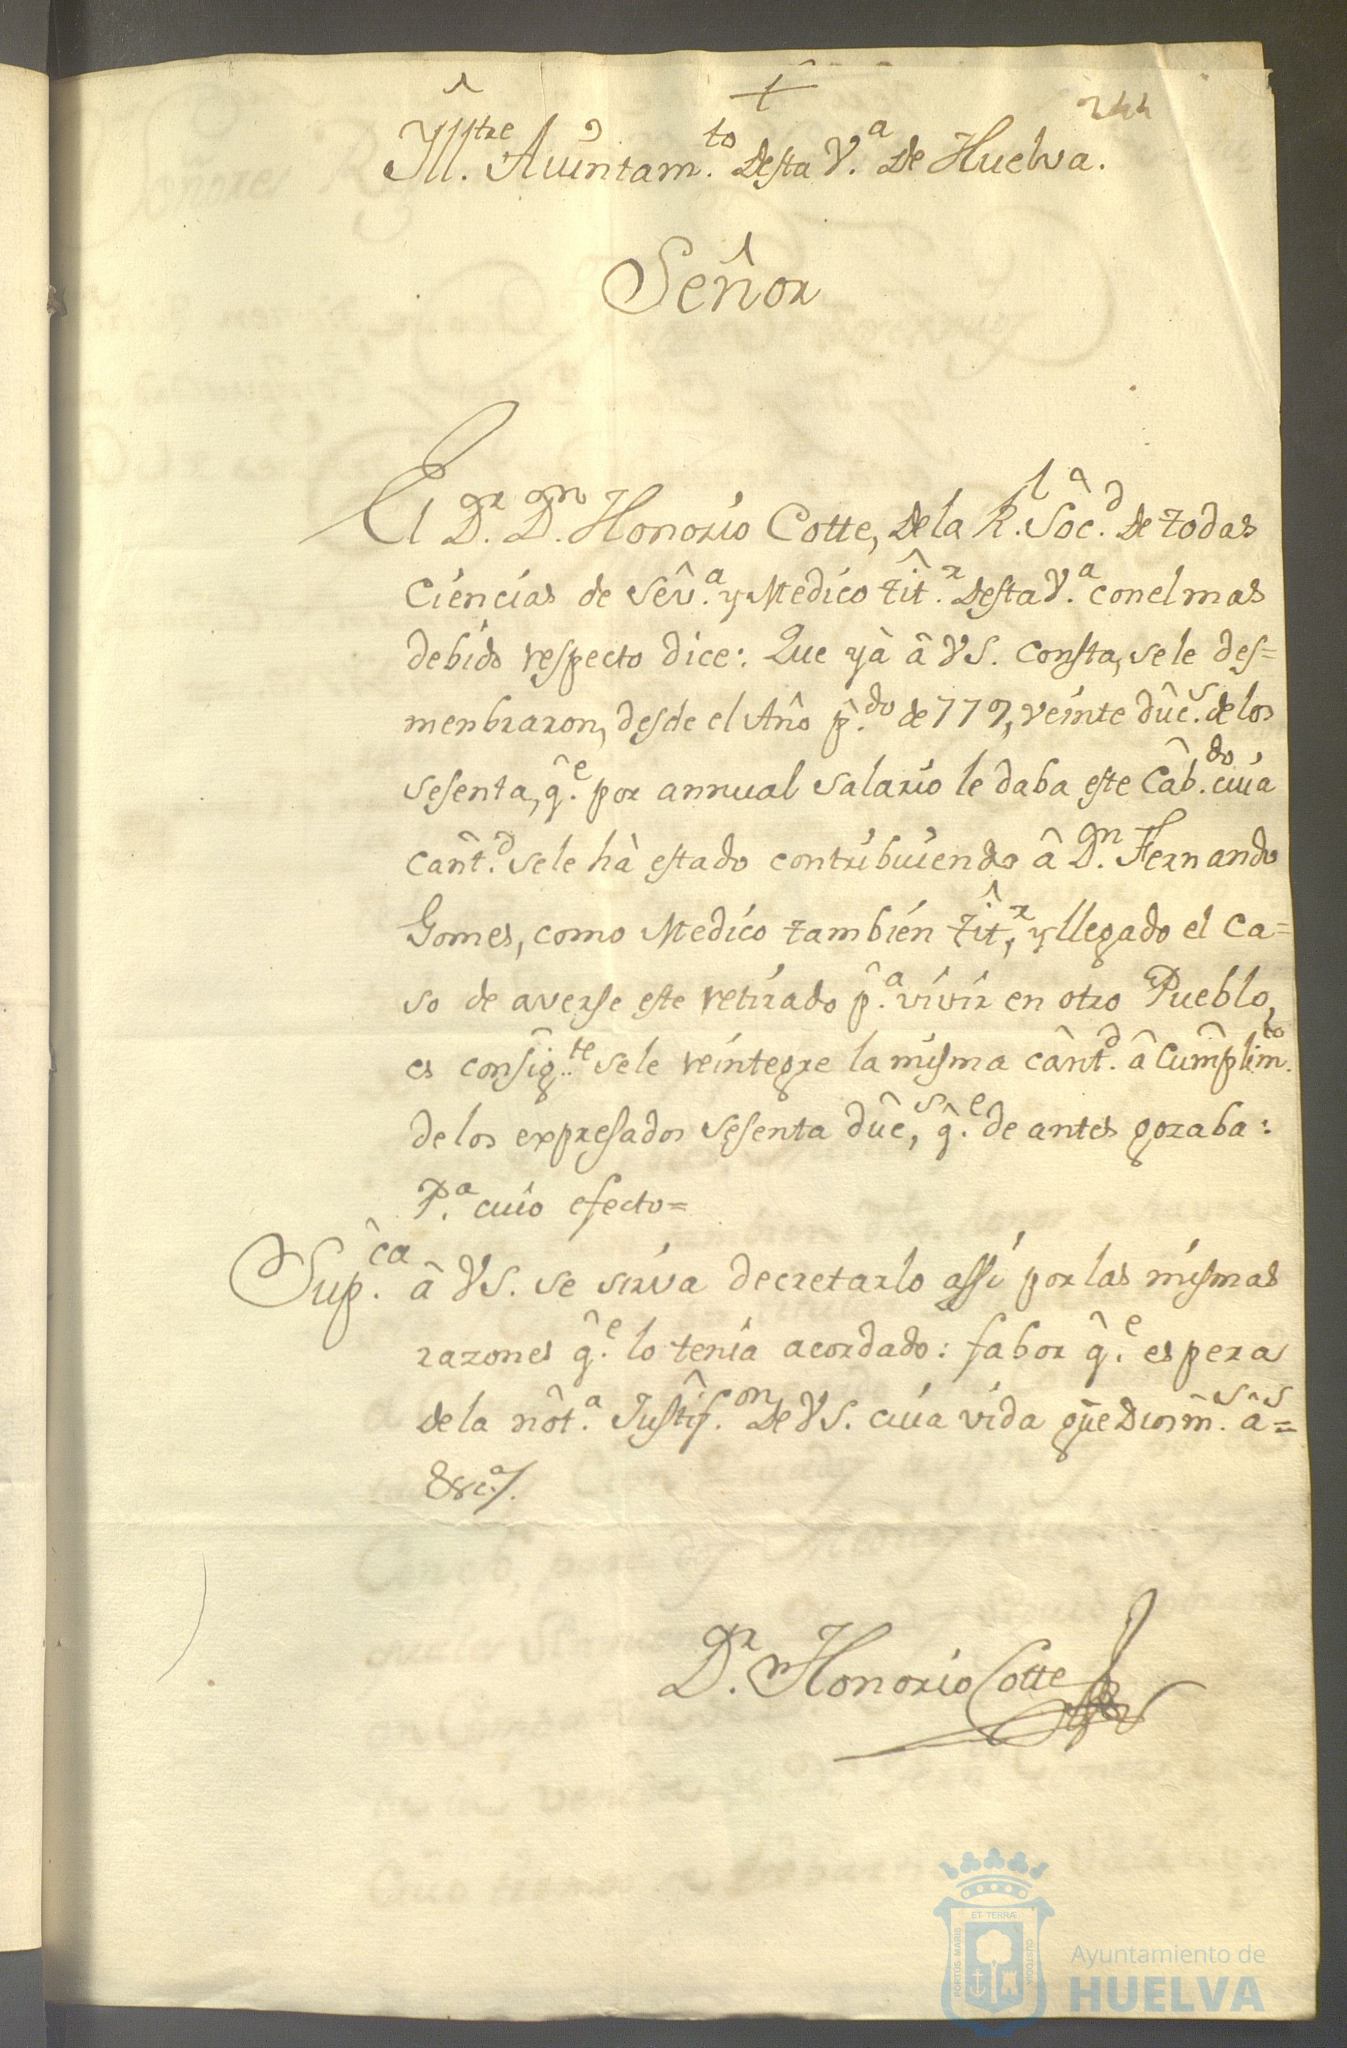 244
Yll.tre Aiuntam.to desta V.a de Huelva.
Señor
El D.or D.on Honorio Cotte, de la R.l Soc.d de todas
Ciencias de Sev.a y Medico tit.r desta V.a con el mas
debido respecto dice: Que yà â VS. consta, se le des=
menbraron, desde el Año p.do de 779, veinte duc.s de los
sesenta, q.e por annual salario le daba este Cab.do cuia
cant.d se le hà estado contribuiendo â D.n Fernando
Gomes, como Medico tambien tit.r, y llegado el ca=
so de averse este retirado p.a vivir en otro Pueblo,
es consig.te se le reintegre la misma cant.d â cumplim.to
de los expresados sesenta duc.s, q.e de antes gozaba:
P.a cuio efecto=
Sup.ca â VS. se sirva decretarlo assi por las mismas
razones q.e lo tenia acordado: fabor q.e espera
de la not.a Justif.on de VS. cuia vida gûe Dios m.s a.s=
&c.a/.
D.r Honorio Cotte
PORTUS MARIS
ET TERRÆ
CUSTODIA
Ayuntamiento de
HUELVA